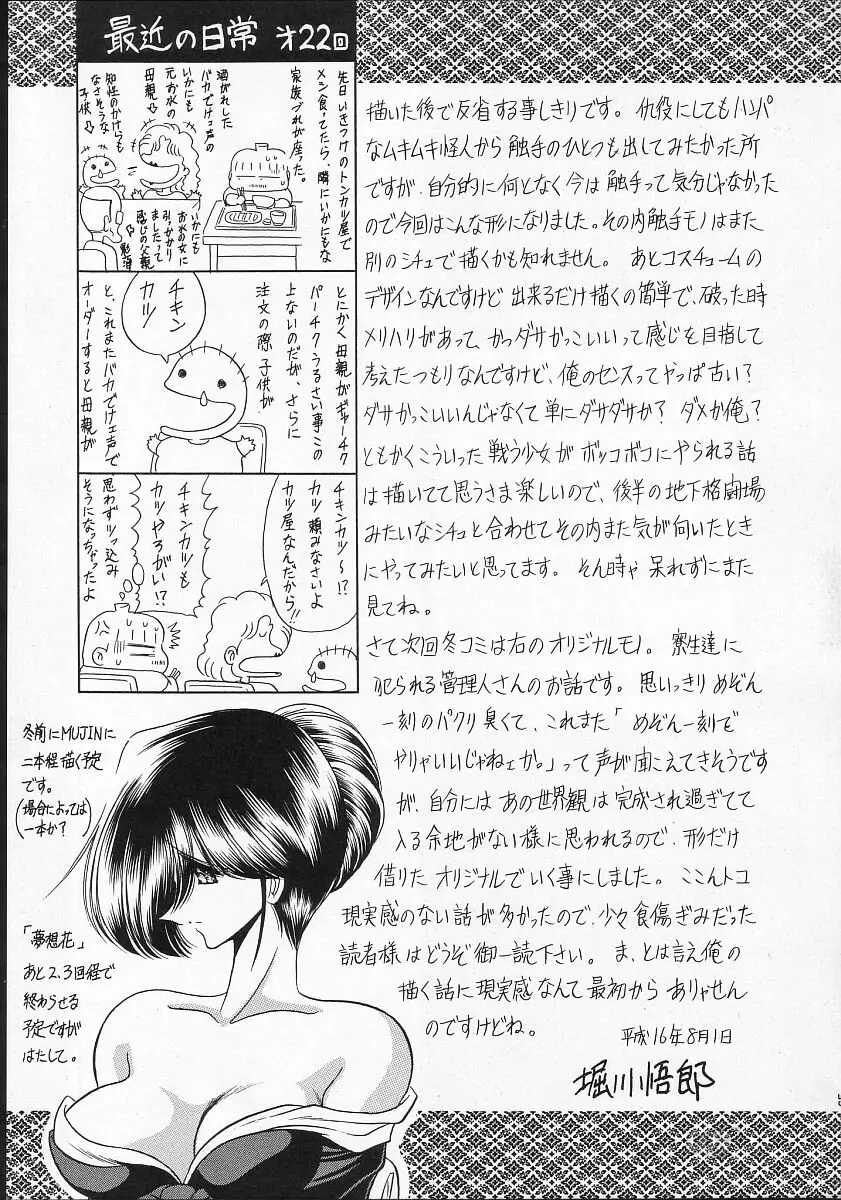 最近の日常 オ22回
先日いきつけのトンカツ屋で
メシ食ってたら、隣にいかにもな
家族づれが座った。
酒がれした
バカでけェ声の
いかにも
元お水の
母親⇨
知性のかけらも
なさそうな
子供⇨
いかにも
お水の女に
引っかかり
ましたって
感じの父親
とにかく母親がギャーチク
パーチクうるさい事この
上ないのだが、さらに
注文の際 子供が
チキン
カツ
と、これまたバカでけェ声で
オーダーすると母親が
チキンカツ〜!?
カツ頼みなさいよ
カツ屋なんだから!!
チキンカツも
カツやろがい!?
思わずツっ込み
そうになっちゃったよ
描いた後で反省する事しきりです。仇役にしてもハンパ
なムキムキ怪人から触手のひとつも出してみたかった所
ですが、自分的に何となく今は触手って気分じゃなかった
ので今回はこんな形になりました。その内触手モノはまた
別のシチュで描くかも知れません。あとコスチュームの
デザインなんですけど出来るだけ描くの簡単で、破った時
メリハリがあって、かっダサかっこいいって感じを目指して
考えたつもりなんですけど、俺のセンスってやっぱ古い?
ダサかっこいいんじゃなくて単にダサダサか? ダメか俺?
ともかくこういった戦う少女がボッコボコにやられる話
は描いてて思うさま楽しいので、後半の地下格闘場
みたいなシチュと合わせてその内また気が向いたとき
にやってみたいと思ってます。そん時ゃ呆れずにまた
見てね。
さて次回冬コミは右のオリジナルモノ。寮生達に
犯られる管理人さんのお話です。思いっきりめぞん
一刻のパクリ臭くて、これまた「めぞん一刻で
やりゃいいじゃねェか。」って声が聞こえてきそうです
が、自分にはあの世界観は完成され過ぎてて
入る余地がない様に思われるので、形だけ
借りたオリジナルでいく事にしました。ここんトコ
現実感のない話が多かったので、少々食傷ぎみだった
読者様はどうぞ御一読下さい。ま、とは言え俺の
描く話に現実感なんて最初からありゃせん
のですけどね。
平成16年8月1日
堀川悟郎
冬前にMUJINに
二本程描く予定
です。
(場合によっては
一本か?)
「夢想花」
あと2,3回程で
終わらせる
予定ですが
はたして。